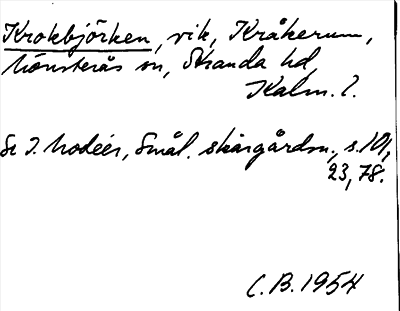 Krokbjörken, vik, Kråkerum,
Mönsterås sn, Stranda hd,
Kalm. l.
Se I. Modéer, Smål. skärgårdsn., s. 101,
23, 78.
C.B. 1954